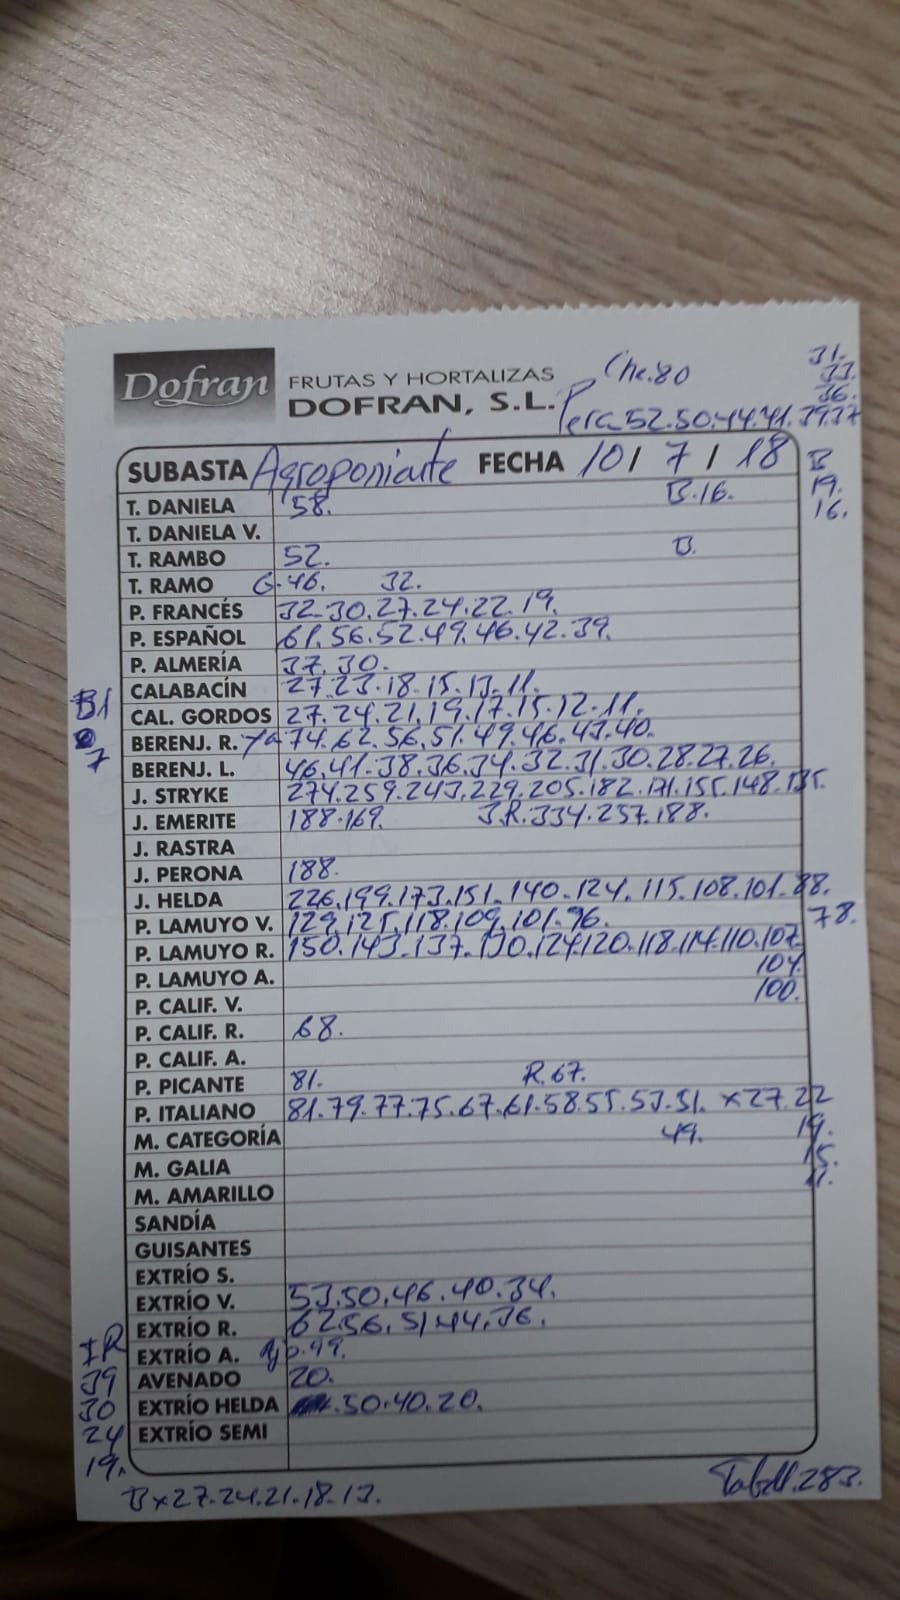 Dofran FRUTAS Y HORTALIZAS
DOFRAN, S.L.
Che.80
Pera 52.50.44.41.39.37
31.
33.
36.
SUBASTA Agroponiente FECHA 10/7/18
B
19.
16.
T. DANIELA 58. B.16.
T. DANIELA V.
T. RAMBO 52. B.
T. RAMO G.46. 32.
P. FRANCÉS 32.30.27.24.22.19.
P. ESPAÑOL 61.56.52.49.46.42.39.
P. ALMERÍA 37.30.
CALABACÍN 27.23.18.15.13.11.
B1
7
CAL. GORDOS 27.24.21.19.17.15.12.11.
BERENJ. R. 74.62.56.51.49.46.43.40.
BERENJ. L. 46.41.38.36.34.32.31.30.28.27.26.
J. STRYKE 274.259.243.229.205.182.171.155.148.135.
J. EMERITE 188.169. J.R.334.257.188.
J. RASTRA
J. PERONA 188.
J. HELDA 226.199.173.151.140.124.115.108.101.88.
78.
P. LAMUYO V. 129.125.118.109.101.96.
P. LAMUYO R. 150.143.137.130.124.120.118.114.110.107.
104.
100.
P. LAMUYO A.
P. CALIF. V.
P. CALIF. R. 68.
P. CALIF. A.
P. PICANTE 81. R.67.
P. ITALIANO 81.79.77.75.67.61.58.55.53.51. x27.22
49. 19.
15.
11.
M. CATEGORÍA
M. GALIA
M. AMARILLO
SANDÍA
GUISANTES
EXTRÍO S.
EXTRÍO V. 53.50.46.40.34.
EXTRÍO R. 62.56.51.44.36.
EXTRÍO A. 49.
AVENADO 20.
EXTRÍO HELDA .50.40.20.
EXTRÍO SEMI
IR
39
30
24
19.
Bx27.24.21.18.13.
283.